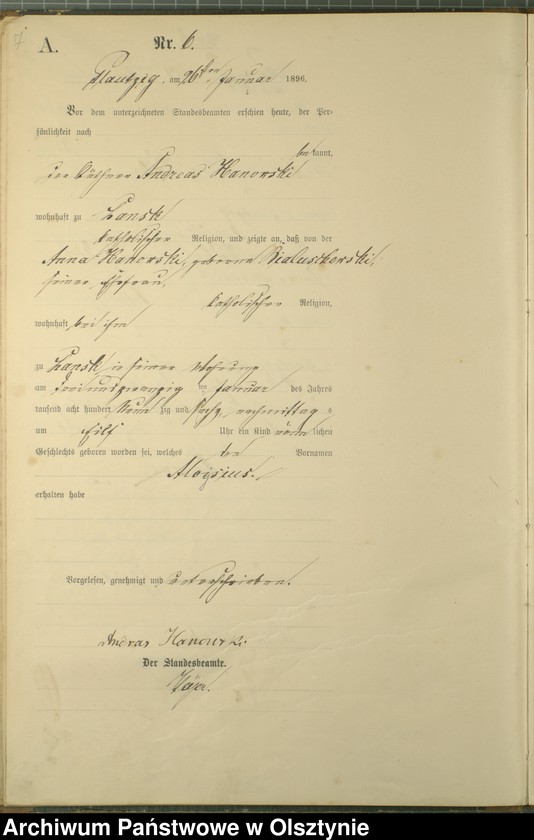 7
A.
Nr. 6.
Plautzig, am 26ten Januar 1896.
Vor dem unterzeichneten Standesbeamten erschien heute, der Per-
sönlichkeit nach
be kannt,
der Käthner Andreas Hanowski
wohnhaft zu Lansk
katholischer Religion, und zeigte an, daß von der
Anna Hanowski, geborne Bialuschewski,
seiner Ehefrau,
katholischer Religion,
wohnhaft bei ihm
zu Lansk in seiner Wohnung
am dreiundzwanzig ten Januar des Jahres
tausend acht hundert Neun zig und sechs, nachmittag s
um Eilf Uhr ein Kind männ lichen
Geschlechts geboren worden sei, welches den Vornamen
Aloysius.
erhalten habe
Vorgelesen, genehmigt und unterschrieben.
Andras Hanowski
Der Standesbeamte.
Archiwum Państwowe w Olsztynie